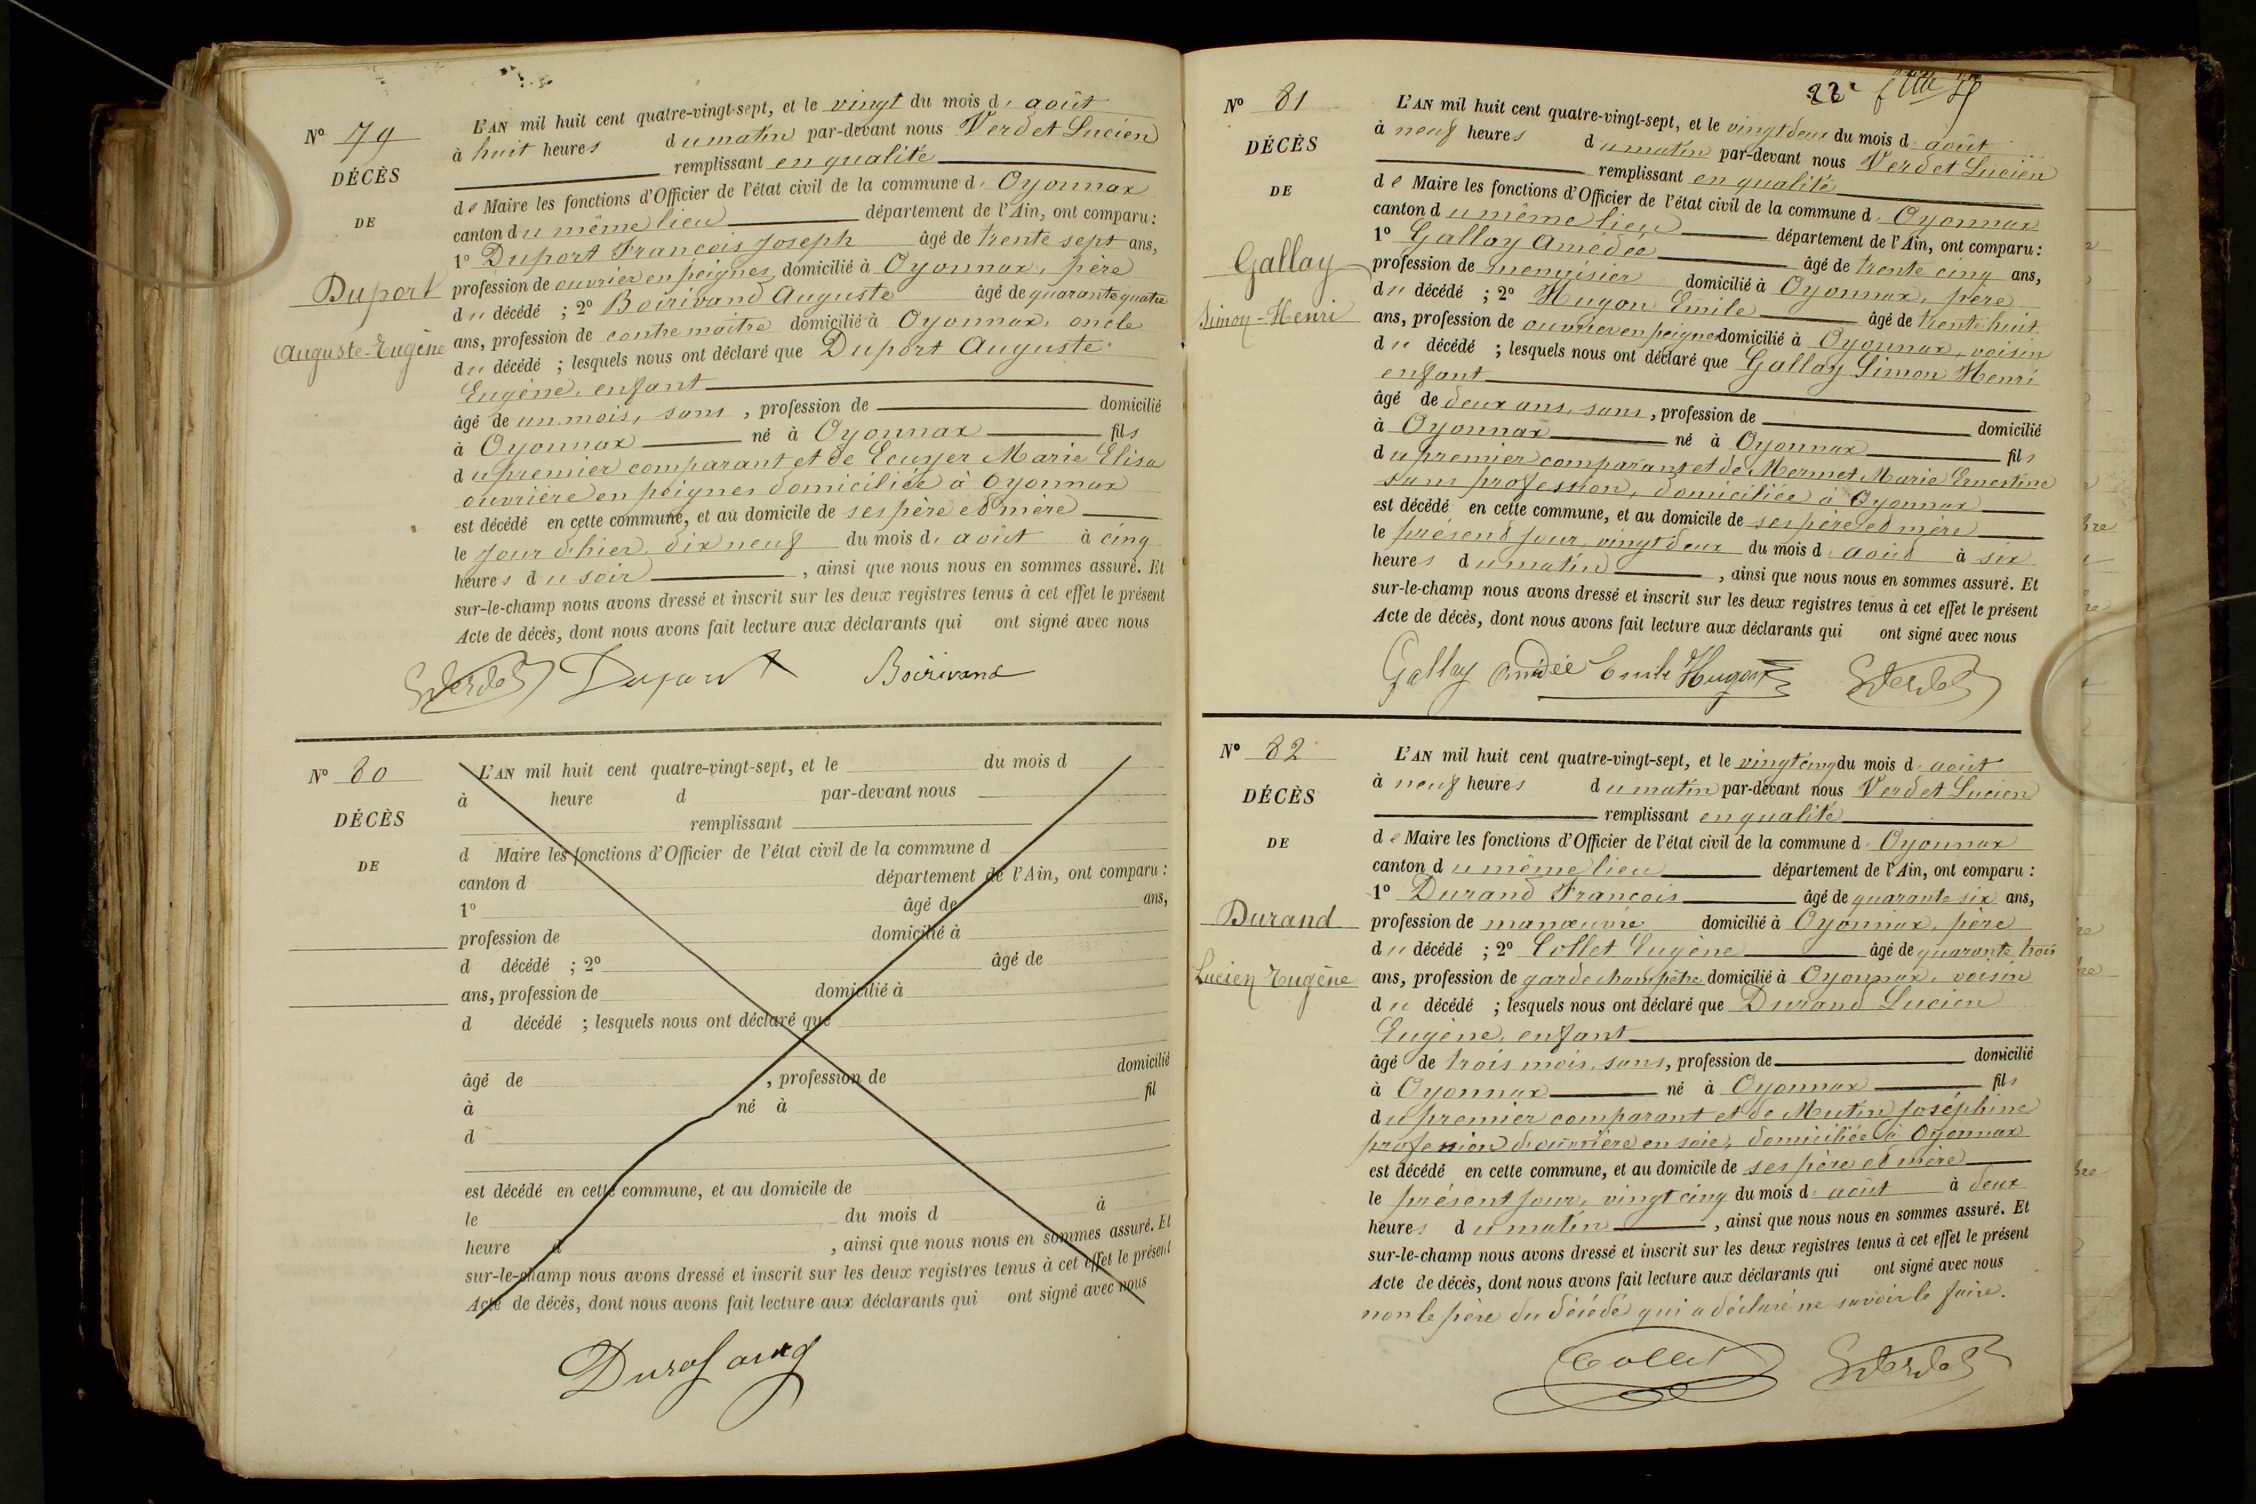 Nº 79
DÉCÈS
DE
Duport
Auguste-Eugène
L'AN mil huit cent quatre-vingt-sept, et le vingt du mois d' août
à huit heures du matin par-devant nous Verdet Lucien
remplissant en qualité
de Maire les fonctions d'Officier de l'état civil de la commune d' Oyonnax
canton du même lieu département de l'Ain, ont comparu :
1º Duport François Joseph âgé de trente sept ans,
profession de ouvrier en peignes domicilié à Oyonnax, père
du décédé ; 2º Boirivand Auguste âgé de quarante quatre
ans, profession de contre maître domicilié à Oyonnax, oncle
du décédé ; lesquels nous ont déclaré que Duport Auguste
Eugène, enfant
âgé de un mois, sans , profession de domicilié
à Oyonnax né à Oyonnax fils
du premier comparant et de Ecuyer Marie Elisa
ouvrière en peignes domiciliée à Oyonnax
est décédé en cette commune, et au domicile de ses père et mère
le jour d'hier, dix neuf du mois d' août à cinq
heures du soir , ainsi que nous nous en sommes assuré. Et
sur-le-champ nous avons dressé et inscrit sur les deux registres tenus à cet effet le présent
Acte de décès, dont nous avons fait lecture aux déclarants qui ont signé avec nous
Verdet Duport Boirivand
Nº 80
DÉCÈS
DE
L'AN mil huit cent quatre-vingt-sept, et le du mois d
à heure d par-devant nous
remplissant
d Maire les fonctions d'Officier de l'état civil de la commune d
canton d département de l'Ain, ont comparu :
1º âgé de ans,
profession de domicilié à
d décédé ; 2º âgé de
ans, profession de domicilié à
d décédé ; lesquels nous ont déclaré que
âgé de , profession de domicilié
à né à fil
d
est décédé en cette commune, et au domicile de
le du mois d à
heure d , ainsi que nous nous en sommes assuré. Et
sur-le-champ nous avons dressé et inscrit sur les deux registres tenus à cet effet le présent
Acte de décès, dont nous avons fait lecture aux déclarants qui ont signé avec nous
Nº 81
DÉCÈS
DE
Gallay
Simon-Henri
L'AN mil huit cent quatre-vingt-sept, et le vingt deux du mois d' août
à neuf heures du matin par-devant nous Verdet Lucien
remplissant en qualité
de Maire les fonctions d'Officier de l'état civil de la commune d' Oyonnax
canton du même lieu département de l'Ain, ont comparu :
1º Gallay Amédée âgé de trente cinq ans,
profession de menuisier domicilié à Oyonnax, père
du décédé ; 2º Hugon Emile âgé de trente huit
ans, profession de ouvrier en peignes domicilié à Oyonnax, voisin
du décédé ; lesquels nous ont déclaré que Gallay Simon Henri
enfant
âgé de deux ans, sans , profession de domicilié
à Oyonnax né à Oyonnax fils
du premier comparant et de Mermet Marie Ernestine
sans profession, domiciliée à Oyonnax
est décédé en cette commune, et au domicile de ses père et mère
le présent jour, vingt deux du mois d' août à six
heures du matin , ainsi que nous nous en sommes assuré. Et
sur-le-champ nous avons dressé et inscrit sur les deux registres tenus à cet effet le présent
Acte de décès, dont nous avons fait lecture aux déclarants qui ont signé avec nous
Gallay Amédée Emile Hugon Verdet
Nº 82
DÉCÈS
DE
Durand
Lucien Eugène
L'AN mil huit cent quatre-vingt-sept, et le vingt cinq du mois d' août
à neuf heures du matin par-devant nous Verdet Lucien
remplissant en qualité
de Maire les fonctions d'Officier de l'état civil de la commune d' Oyonnax
canton du même lieu département de l'Ain, ont comparu :
1º Durand François âgé de quarante six ans,
profession de manœuvre domicilié à Oyonnax, père
du décédé ; 2º Collet Eugène âgé de quarante trois
ans, profession de garde champêtre domicilié à Oyonnax, voisin
du décédé ; lesquels nous ont déclaré que Durand Lucien
Eugène, enfant
âgé de trois mois, sans , profession de domicilié
à Oyonnax né à Oyonnax fils
du premier comparant et de Mutin Joséphine
profession d'ouvrière en soie, domiciliée à Oyonnax
est décédé en cette commune, et au domicile de ses père et mère
le présent jour, vingt cinq du mois d' août à deux
heures du matin , ainsi que nous nous en sommes assuré. Et
sur-le-champ nous avons dressé et inscrit sur les deux registres tenus à cet effet le présent
Acte de décès, dont nous avons fait lecture aux déclarants qui ont signé avec nous
non le père du décédé qui a déclaré ne savoir le faire.
Collet Verdet